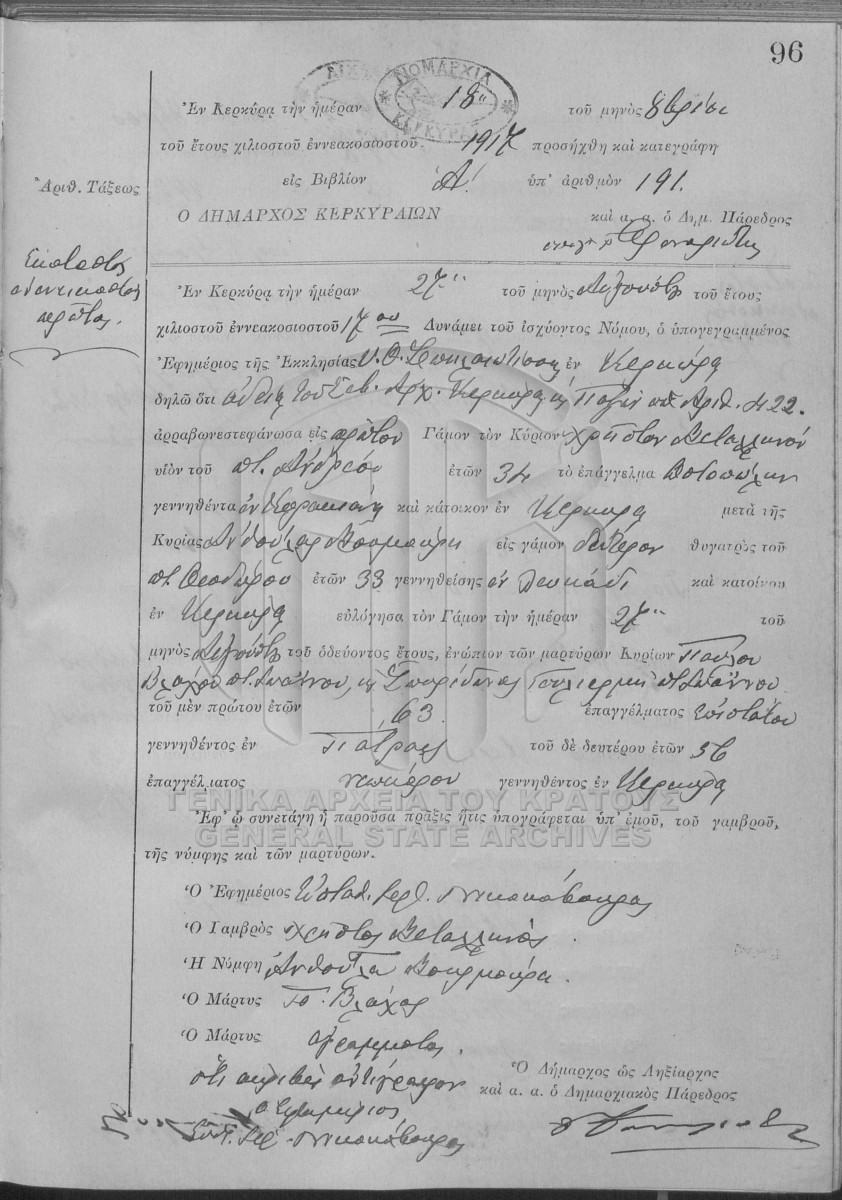 96
ΝΟΜΑΡΧΙΑ
ΚΕΡΚΥΡΑΣ
Ἐν Κερκύρᾳ τὴν ἡμέραν 18 τοῦ μηνὸς 8βρίου
τοῦ ἔτους χιλιοστοῦ ἐννεακοσιοστοῦ 1917 προσήχθη καὶ κατεγράφη
Ἀριθ. Τάξεως
εἰς Βιβλίον Α! ὑπ' ἀριθμὸν 191.
Ο ΔΗΜΑΡΧΟΣ ΚΕΡΚΥΡΑΙΩΝ καὶ α. α. ὁ Δημ. Πάρεδρος
Ἑκατοστὸς
ἐνενηκοστὸς
πρῶτος.
Ἐν Κερκύρᾳ τὴν ἡμέραν 27 τοῦ μηνὸς Αὐγούστου τοῦ ἔτους
χιλιοστοῦ ἐννεακοσιοστοῦ 17ου Δυνάμει τοῦ ἰσχύοντος Νόμου, ὁ ὑπογεγραμμένος
Ἐφημέριος τῆς Ἐκκλησίας Υ. Θ. Σπηλαιωτίσσης ἐν Κερκύρᾳ
δηλῶ ὅτι ἀδείᾳ τοῦ Σεβ. Ἀρχ. Κερκύρας κ Παξῶν ὑπ' Ἀριθ. 422.
ἀρραβωνεστεφάνωσα εἰς πρῶτον Γάμον τὸν Κύριον Χρῆστον Μεταλληνόν
υἱὸν τοῦ π. Ἀνδρέου ἐτῶν 34 τὸ ἐπάγγελμα
γεννηθέντα ἐν καὶ κάτοικον ἐν Κερκύρᾳ μετὰ τῆς
Κυρίας Ἀνθούλας εἰς γάμον δεύτερον θυγατρὸς τοῦ
π. Θεοδώρου ἐτῶν 33 γεννηθείσης ἐν Λευκάδι καὶ κατοίκου
ἐν Κερκύρᾳ εὐλόγησα τὸν Γάμον τὴν ἡμέραν 27 τοῦ
μηνὸς Αὐγούστου τοῦ ὁδεύοντος ἔτους, ἐνώπιον τῶν μαρτύρων Κυρίων Παύλου
Βλάχου π. Ἰωάννου, κ Σπυρίδωνος π. Ἰωάννου
τοῦ μὲν πρώτου ἐτῶν 63 ἐπαγγέλματος
γεννηθέντος ἐν Πάτραις τοῦ δὲ δευτέρου ἐτῶν 36
ἐπαγγέλματος γεννηθέντος ἐν Κερκύρᾳ
ΓΕΝΙΚΑ ΑΡΧΕΙΑ ΤΟΥ ΚΡΑΤΟΥΣ
Ἐφ' ᾧ συνετάγη ἡ παροῦσα πρᾶξις ἥτις ὑπογράφεται ὑπ' ἐμοῦ, τοῦ γαμβροῦ,
GENERAL STATE ARCHIVES
τῆς νύμφης καὶ τῶν μαρτύρων.
Ὁ Ἐφημέριος
Ὁ Γαμβρὸς Χρῆστος Μεταλληνός.
Ἡ Νύμφη Ἀνθούλα
Ὁ Μάρτυς Π. Βλάχος
Ὁ Μάρτυς ἀγράμματος.
Ὅτι ἀκριβὲς ἀντίγραφον
Ὁ Δήμαρχος ὡς Ληξίαρχος
καὶ α. α. ὁ Δημαρχιακὸς Πάρεδρος
ὁ Ἐφημέριος